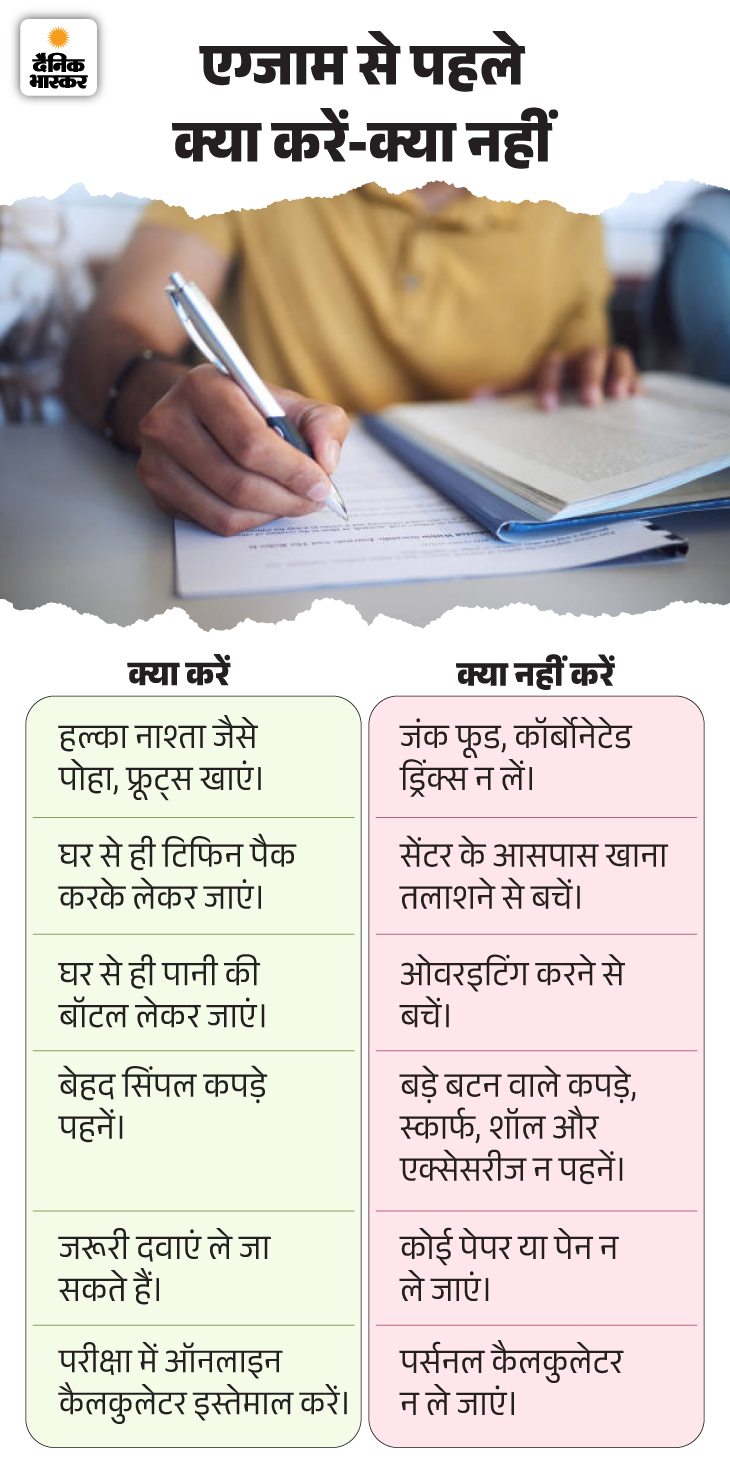 दैनिक
भास्कर
एग्जाम से पहले
क्या करें-क्या नहीं
क्या करें
हल्का नाश्ता जैसे
पोहा, फ्रूट्स खाएं।
घर से ही टिफिन पैक
करके लेकर जाएं।
घर से ही पानी की
बॉटल लेकर जाएं।
बेहद सिंपल कपड़े
पहनें।
जरूरी दवाएं ले जा
सकते हैं।
परीक्षा में ऑनलाइन
कैलकुलेटर इस्तेमाल करें।
क्या नहीं करें
जंक फूड, कॉर्बोनेटेड
ड्रिंक्स न लें।
सेंटर के आसपास खाना
तलाशने से बचें।
ओवरइटिंग करने से
बचें।
बड़े बटन वाले कपड़े,
स्कार्फ, शॉल और
एक्सेसरीज न पहनें।
कोई पेपर या पेन न
ले जाएं।
पर्सनल कैलकुलेटर
न ले जाएं।